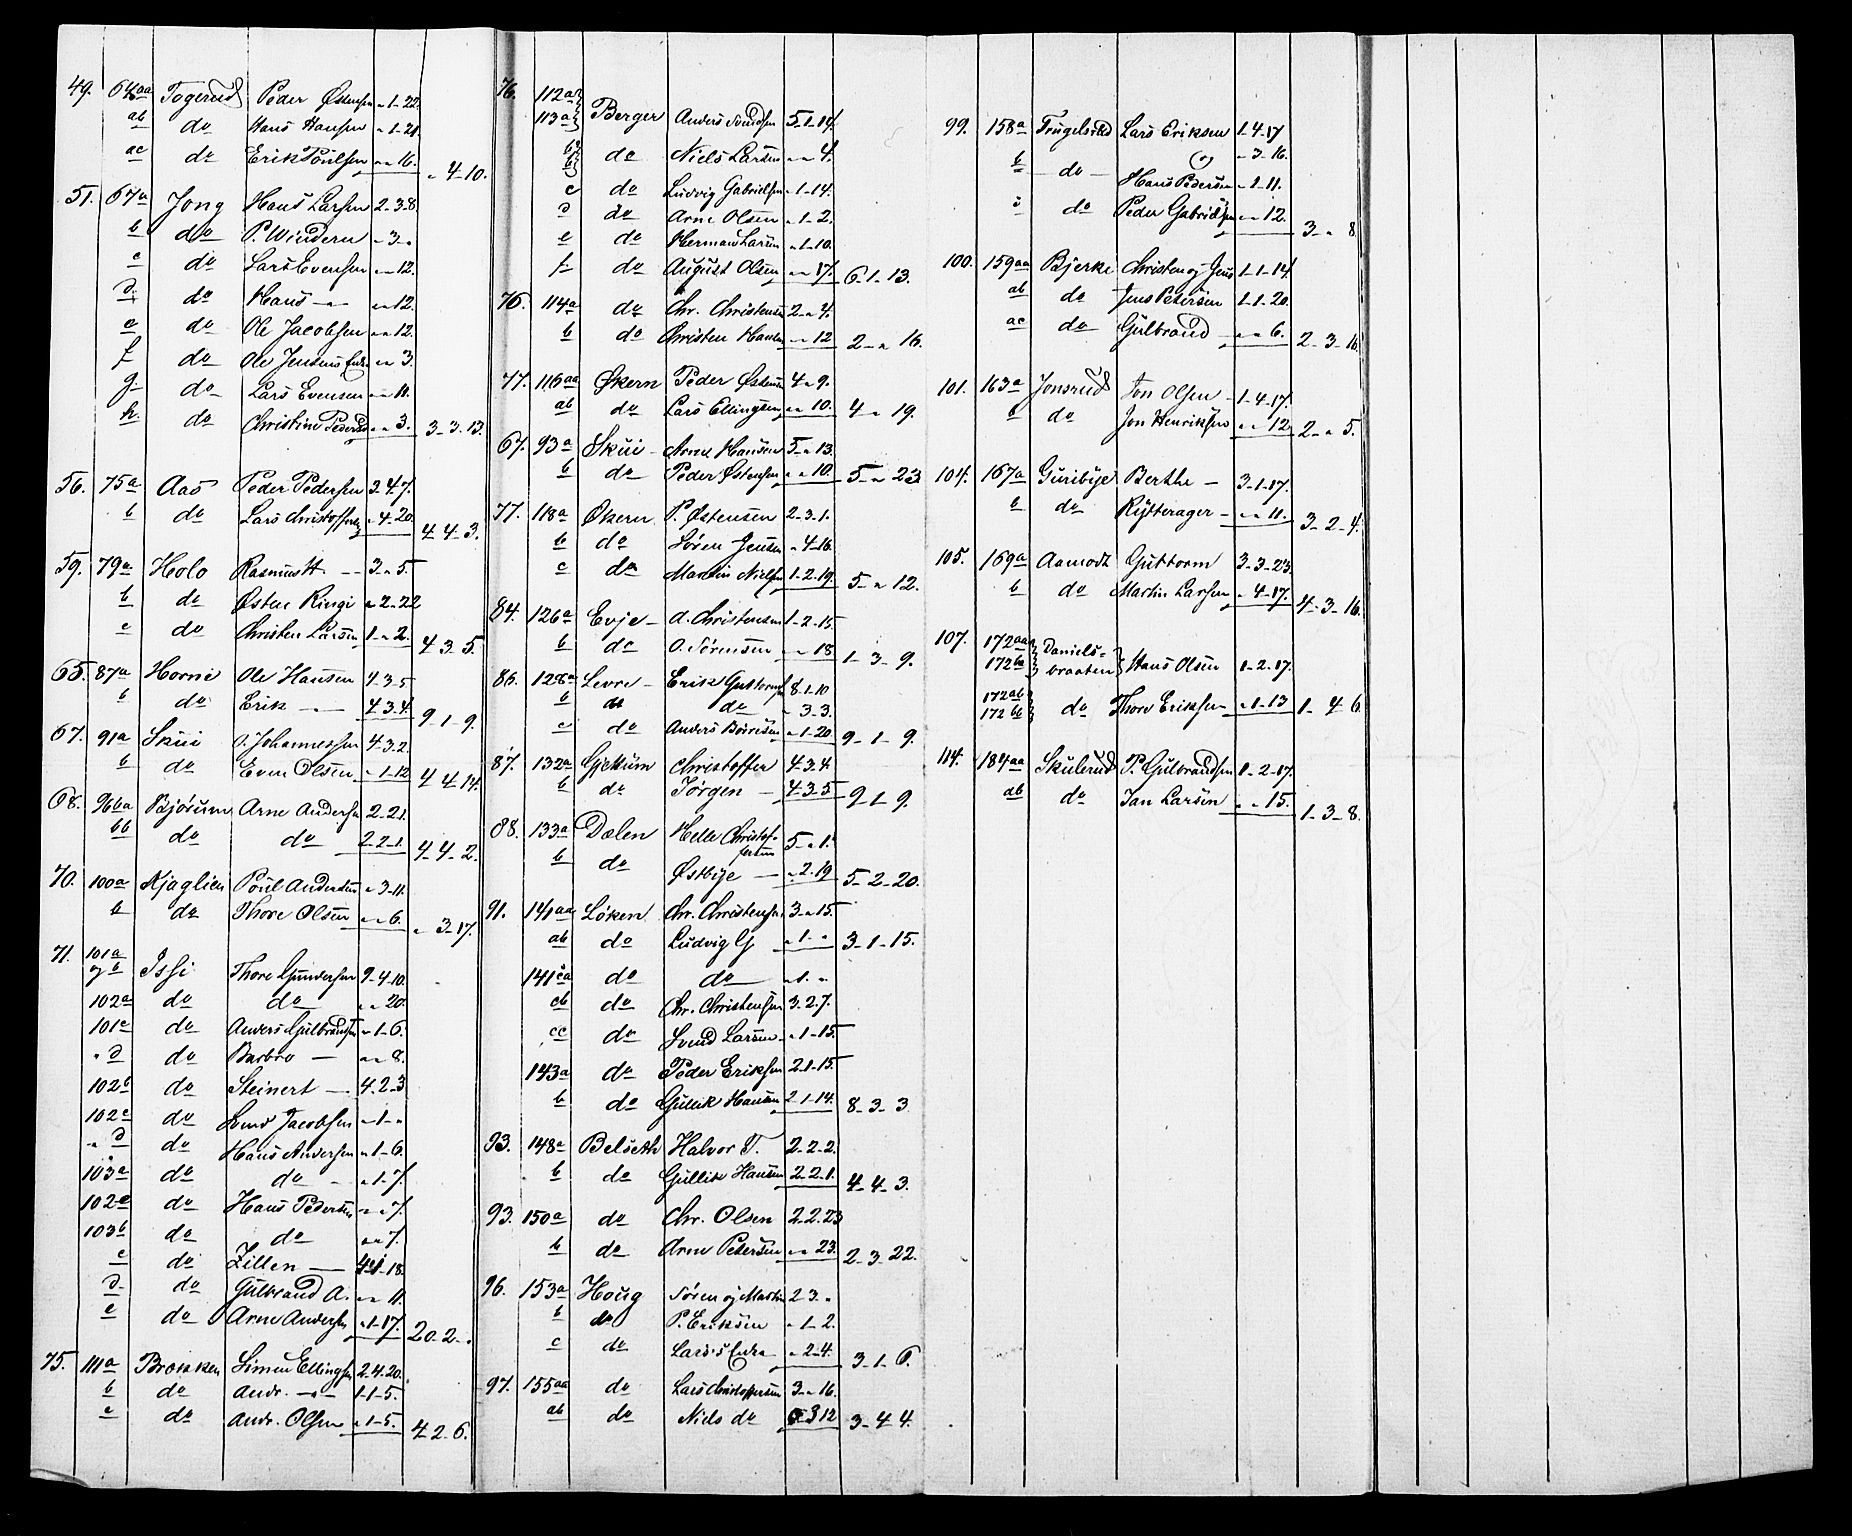 49. 64aa Togerud Peder Østensen „-1-22.
ab do Hans Hansen „-1-21.
ac do Erik Poulsen „-„-16. „-4-10.
51. 67a Jong Hans Larsen 2-3-8.
b do P. Winderen „-3-„
c do Lars Evensen „-„-12.
d. do Hans -„- „-„-12.
e do Ole Jacobsen „-„-12.
f do Ole Jensens Enke „-„-3.
g do Lars Evensen „-„-11.
h. do Christine Pedersd „-„-3. 3-3-13.
56. 75a Aas Peder Pedersen 3-4-7.
b do Lars Christoffersen „-4-20. 4-4-3.
59. 79a Holo Rasmus H -- 3-„-5.
b do Østen Ringi „-2-22
c do Christen Larsen 1-„-2. 4-3-5.
65. 87a Horni Ole Hansen 4-3-5
b do Erik -„- 4-3-4. 9-1-9.
67. 91a Skui O. Johannessen 4-3-2.
b do Even Olsen „-1-12 4-4-14.
68. 96ba Bjørum Arne Andersen 2-2-1.
bb do do 2-2-1. 4-4-2.
70. 100a Kjaglien Poul Andersen „-3-11.
b do Thore Olsen „-„-6. „-3-17.
71. 101a
og b Isi Thore Gundersen 9-4-10.
102a do do „-„-20.
101c do Anders Gulbrandsen „-1-6.
„ d do Barbro — „-„-8.
102b do Steinert — 4-2-3
102c do Svend Jacobsen „-1-„
„ d do Hans Andersen „-1-6.
103a do do - „-1-7
102e do Hans Pedersen „-„-7.
103b do do „-„-7.
c do Zillen — 4-1-18.
d do Gulbrand A. „-„-11.
e do Arne Andersen „-1-17. 20-2-„
75. 111a Brækken Simen Ellingsen 2-4-20.
b do Andr. -„- 1-1-5.
c do Andr. Olsen „-1-5. 4-2-6.
76. 112a
113a Berger Anders Svendsen 5-1-14.
b do Niels Larsen „-„-4.
c do Ludvig Gabrielsen „-1-14.
d do Arne Olsen „-1-2.
e do Herman Larsen „-1-10.
f do August Olsen „-„-17. 6-1-13.
76. 114a do Chr. Christensen 2-„-4.
b do Christen Hansen „-„-12 2-„-16.
77. 116aa Økern Peder Østensen 4-„-9.
ab do Lars Ellingsen „-„-10. 4-„-19.
67. 93a Skui - Arne Hansen 5-„-13.
b do Peder Østensen „-„-10. 5-„-23
77. 118a Økern P. Østensen 2-3-1.
b do Søren Jensen „-4-16.
c do Martin Nielsen 1-2-19. 5-„-12.
84. 126a Evje - A. Christensen 1-2-15
b do O. Sørensen „-„-18 1-3-9.
86. 128a Levre - Erik Guttormsen 8-1-10
b do do „-3-3.
c do Anders Børresen „-1-20. 9-1-9.
87. 132a Gjettum Christoffer 4-3-4.
b do Jørgen — 4-3-5 9-1-9.
88. 133a Dælen Helle Christof-
fersen 5-„-1.
b do Østbye — „-2-19 5-2-20.
91. 141aa Løken Chr. Christensen 3-„-15.
ab do Ludvig G „-1-„ 3-1-15.
141ca do do „-1-„
cb do Chr. Christensen 3-2-7.
cc do Svend Larsen „-1-15.
143a do Peder Eriksen 2-1-15.
b do Gullik Hansen 2-1-14. 8-3-3.
93. 148a Belseth Halvor T. 2-2-2.
b do Gullik Hansen 2-2-1. 4-4-3.
93. 150a do Chr. Olsen 2-2-23
b do Arne Petersen „-„-23. 2-3-22.
96. 153a Houg Søren og Martin 2-3-„
b do P. Eriksen „-1-2.
c do Lars's Enke „-2-4. 3-1-6.
97. 155aa do Lars Christoffersen 3-„-16.
ab do Niels do „-3-12 3-4-4.
99. 158a Trugelsrud Lars Eriksen 1-4-17
„-3-16.
b do — Hans Pedersen „-1-11.
c do Peder Gabrielsen „-„-12. 3-„-8.
100. 159aa Bjerke Christen og Jens 1-1-14.
ab do Jens Petersen 1-1-20.
ac do Gulbrand „-„-6. 2-3-16.
101. 163a Jonsrud Jon Olsen - 1-4-17.
b do Jon Henriksen „-„-12 2-„-5.
104. 167a Guribye Berthe — 3-1-17.
b do Rytterager - „-„-11. 3-2-4.
105. 169a Aamodt Guttorm 3-3-23.
b do Martin Larsen „-4-17. 4-3-16.
107. 172aa
172ba Daniels-
braaten Hans Olsen 1-2-17.
172ab
172bb do Thore Eriksen „-1-13 1-4-6.
114. 184aa Skulerud P. Gulbrandsen 1-2-17.
ab do Jan Larsen „-„-15. 1-3-8.